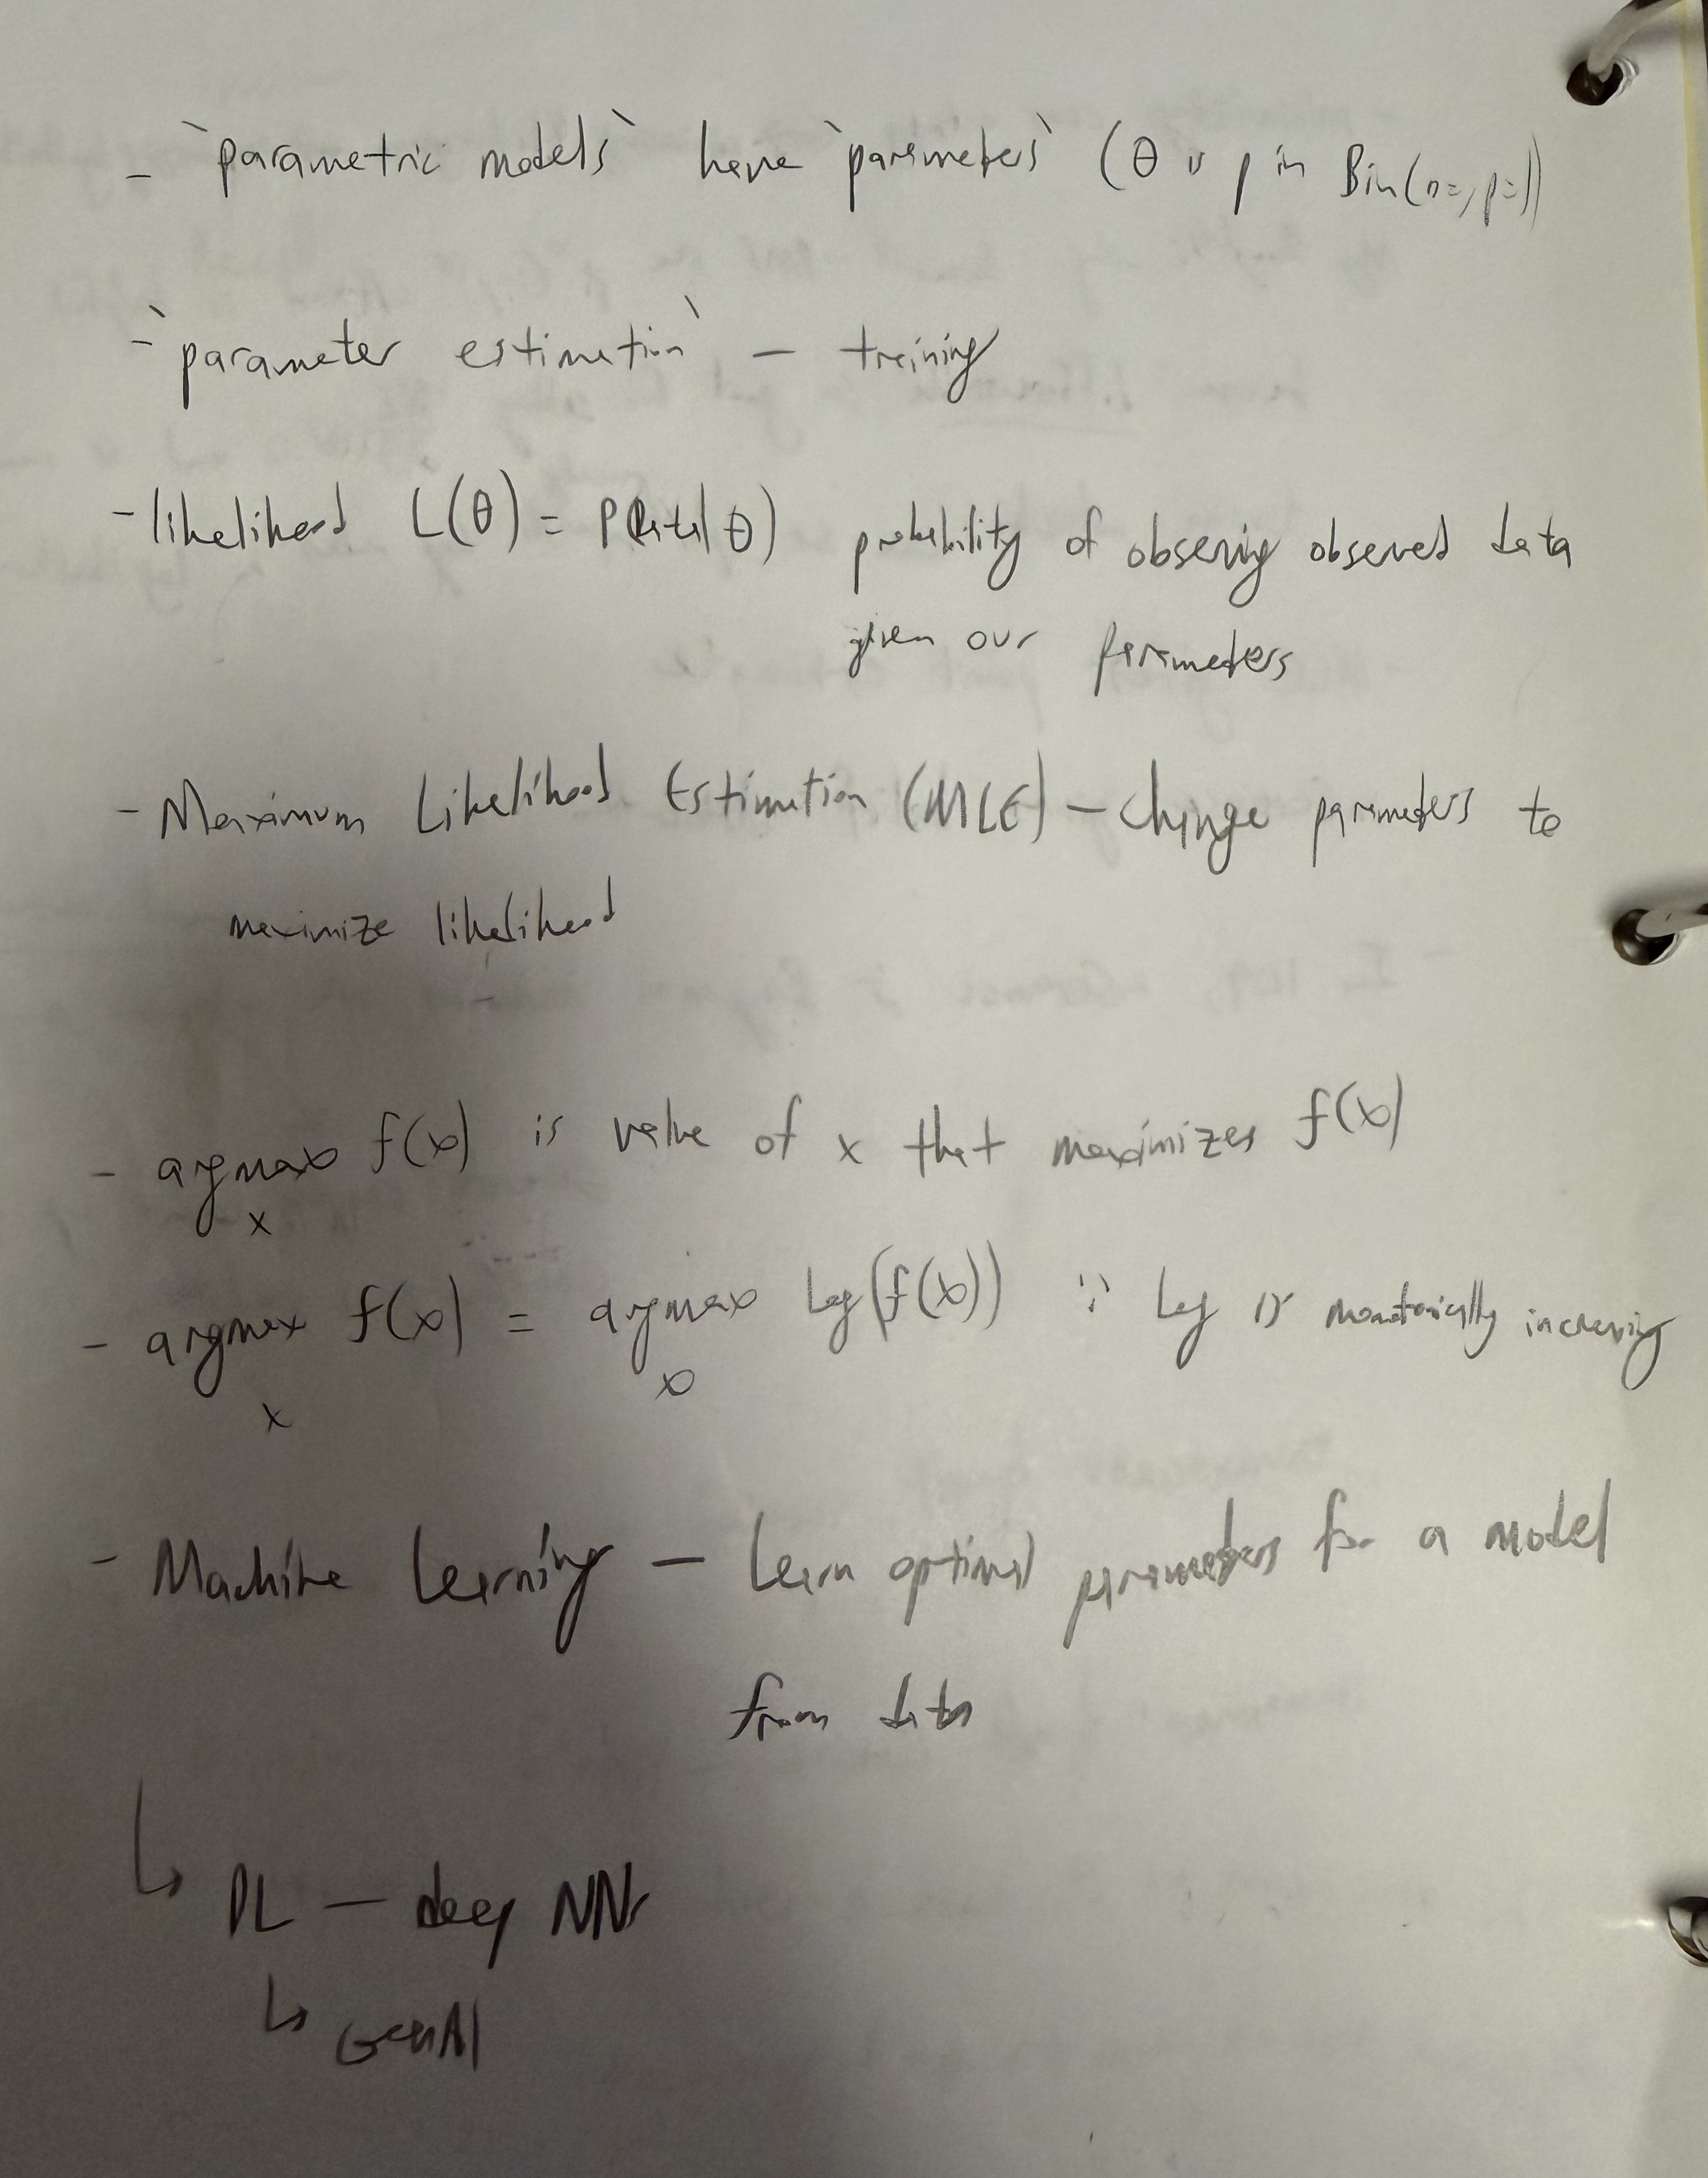 - `parametric models` have `parameters` (θ is p in Bin(n=, p=))
- `parameter estimation` — training
- likelihood L(θ) = P(data|θ) probability of observing observed data
given our parameters
- Maximum Likelihood Estimation (MLE) — change parameters to
maximize likelihood
- argmax f(x) is value of x that maximizes f(x)
x
- argmax f(x) = argmax log(f(x)) ∵ log is monotonically increasing
x x
- Machine Learning — learn optimal parameters for a model
from data
↳ DL — deep NNs
↳ GenAI